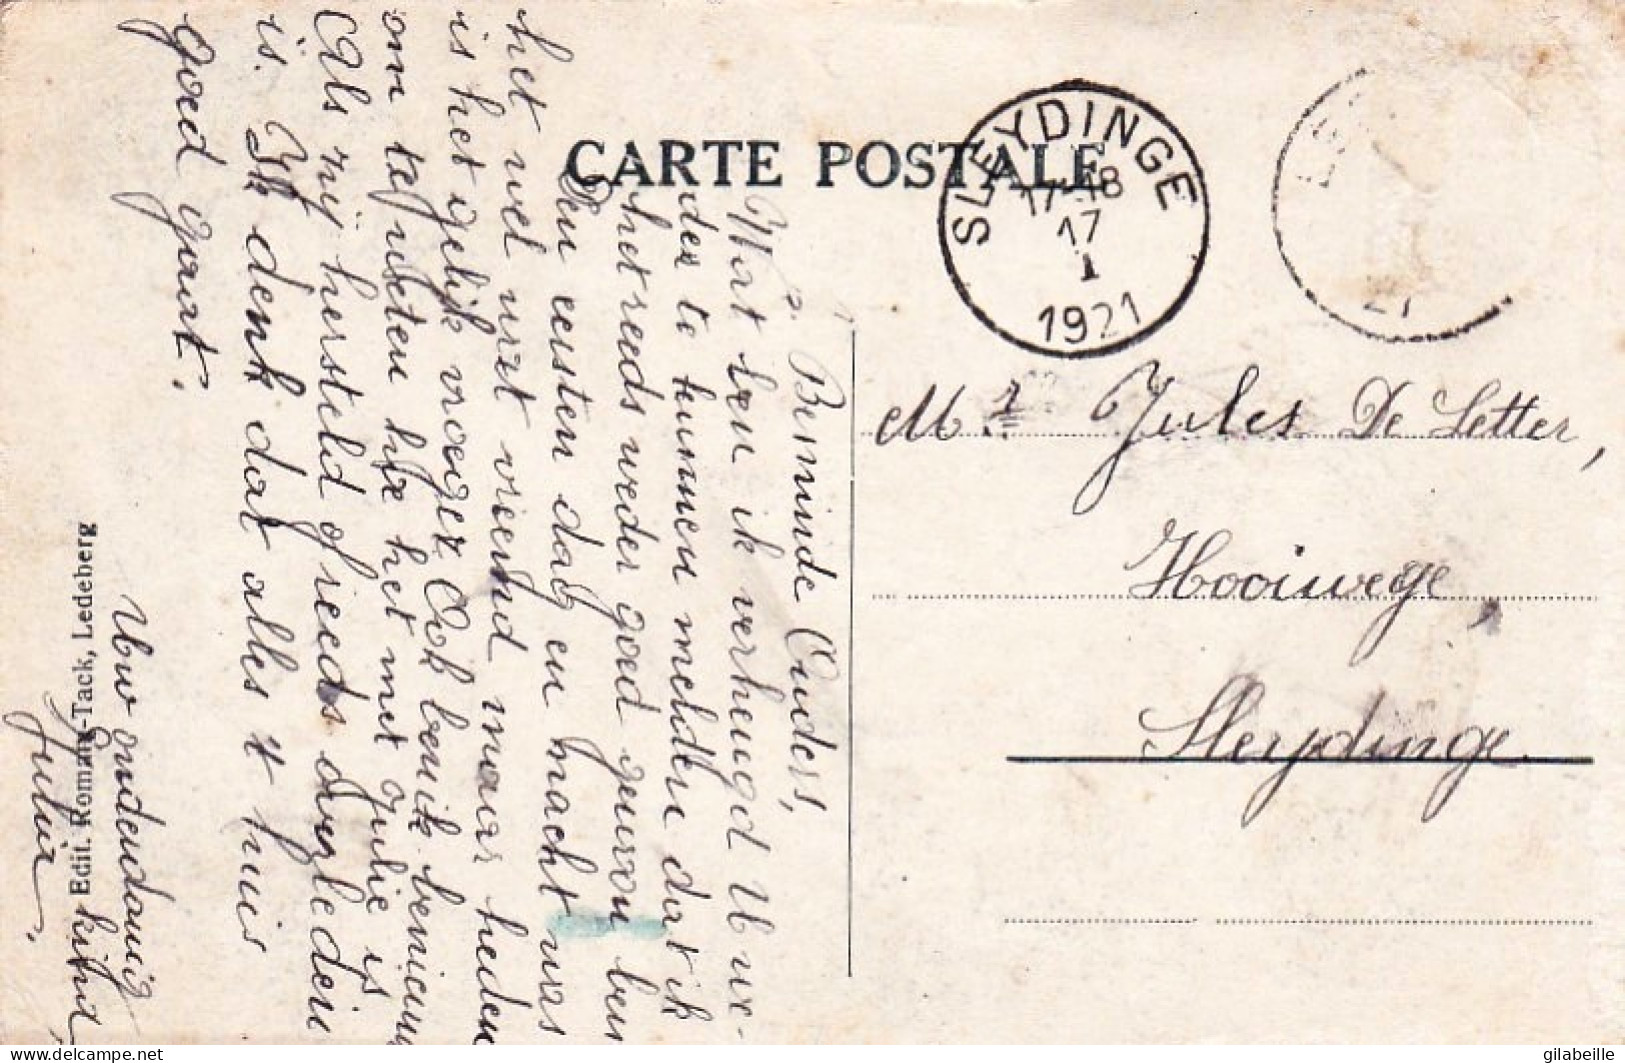 CARTE POSTALE
SLEYDINGE
17-18
17
I
1921
21
Mr. Jules De Letter,
Hooiwege,
Sleydinge.
Beminde Ouders,
Wat ben ik verheugd U we-
der te kunnen melden dat ik
het reeds weder goed gewoon ben
Den eersten dag en nacht was
het wel wat vriemd maar heden
is het gelijk vroeger. Ook ben ik benieuwd
om te weten hoe het met Julie is
Als zij hersteld of reeds overleden
is. Ik denk dat alles t' huis
goed gaat.
Uw onderdanig
kind,
Julia.
Edit. Rommy-Tack, Ledeberg
delcampe.net
gilabeille